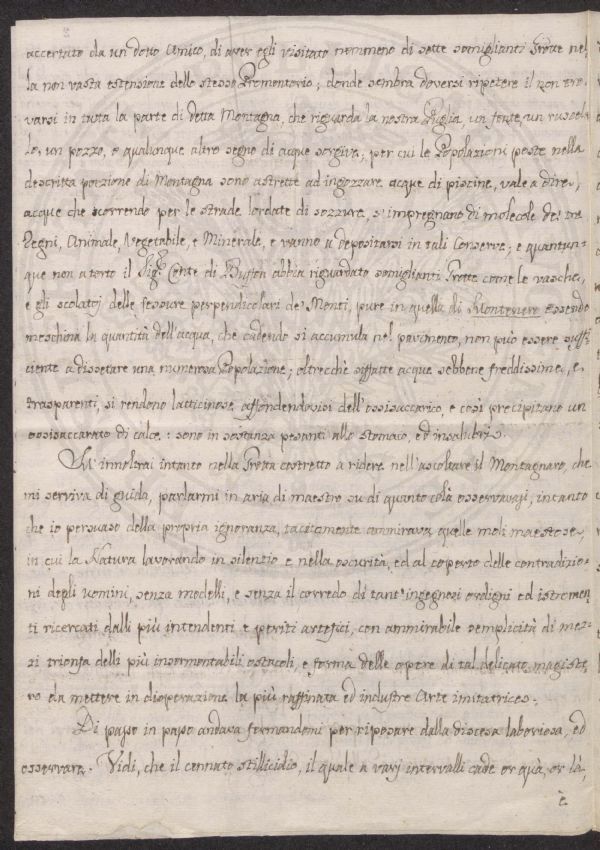 accertato da un dotto Amico, di aver egli visitato nemmeno di sette somiglianti Grotte nel
la non vasta estensione dello stesso Promontorio; donde sembra doversi ripetere il non tro-
varsi in tutta la parte di detta Montagna, che riguarda la nostra Puglia un fonte, un ruscel
lo, un pozzo, o qualunque altro segno di acque sorgive; per cui le Popolazioni poste nella
descritta porzione di Montagna sono astrette ad ingozzare acque di piscine, vale a dire,
acque che scorrendo per le strade lordate di sozzure, s'impregnano di molecole de' tre
Regni, Animale, Vegetabile, e Minerale, e vanno a depositarsi in tali Conserve; e quantun-
que non a torto il Sig.r Conte di Buffon abbia riguardato somiglianti Grotte come le vasche,
e gli scolatoj delle fessure perpendicolari de' Monti, pure in quella di Montenero essendo
meschina la quantità dell'acqua, che cadendo si accumula nel pavimento, non può essere suffi-
ciente a dissetare una numerosa Popolazione; oltrecchè siffatte acque sebbene freddissime, e
trasparenti, si rendono latticinose affondendovisi dell'ossisaccarico, e così precipitano un
ossisaccarato di calce: sono in sostanza pesanti allo stomaco, ed insalubri.
M'innoltrai intanto nella Grotta costretto a ridere nell'ascoltare il Montagnaro, che
mi serviva di guida, parlarmi in aria di maestro su di quanto colà osservavasi, intanto
che io persuaso della propria ignoranza, tacitamente ammirava quelle moli maestose,
in cui la Natura lavorando in silenzio e nella oscurità, ed al coperto delle contradizio-
ni degli uomini, senza modelli, e senza il corredo di tant'ingegnosi ordigni ed istromen
ti ricercati dalli più intendenti e periti artefici, con ammirabile semplicità di mez-
zi trionfa delli più insormontabili ostacoli, e forma delle opere di tal delicato magiste
ro da mettere in disperazione la più raffinata ed industre Arte imitatrice.
Di passo in passo andava fermandomi per riposare dalla discesa laboriosa, ed
osservare. Vidi, che il cennato stillicidio, il quale a varj intervalli cade or quà, or là,
è